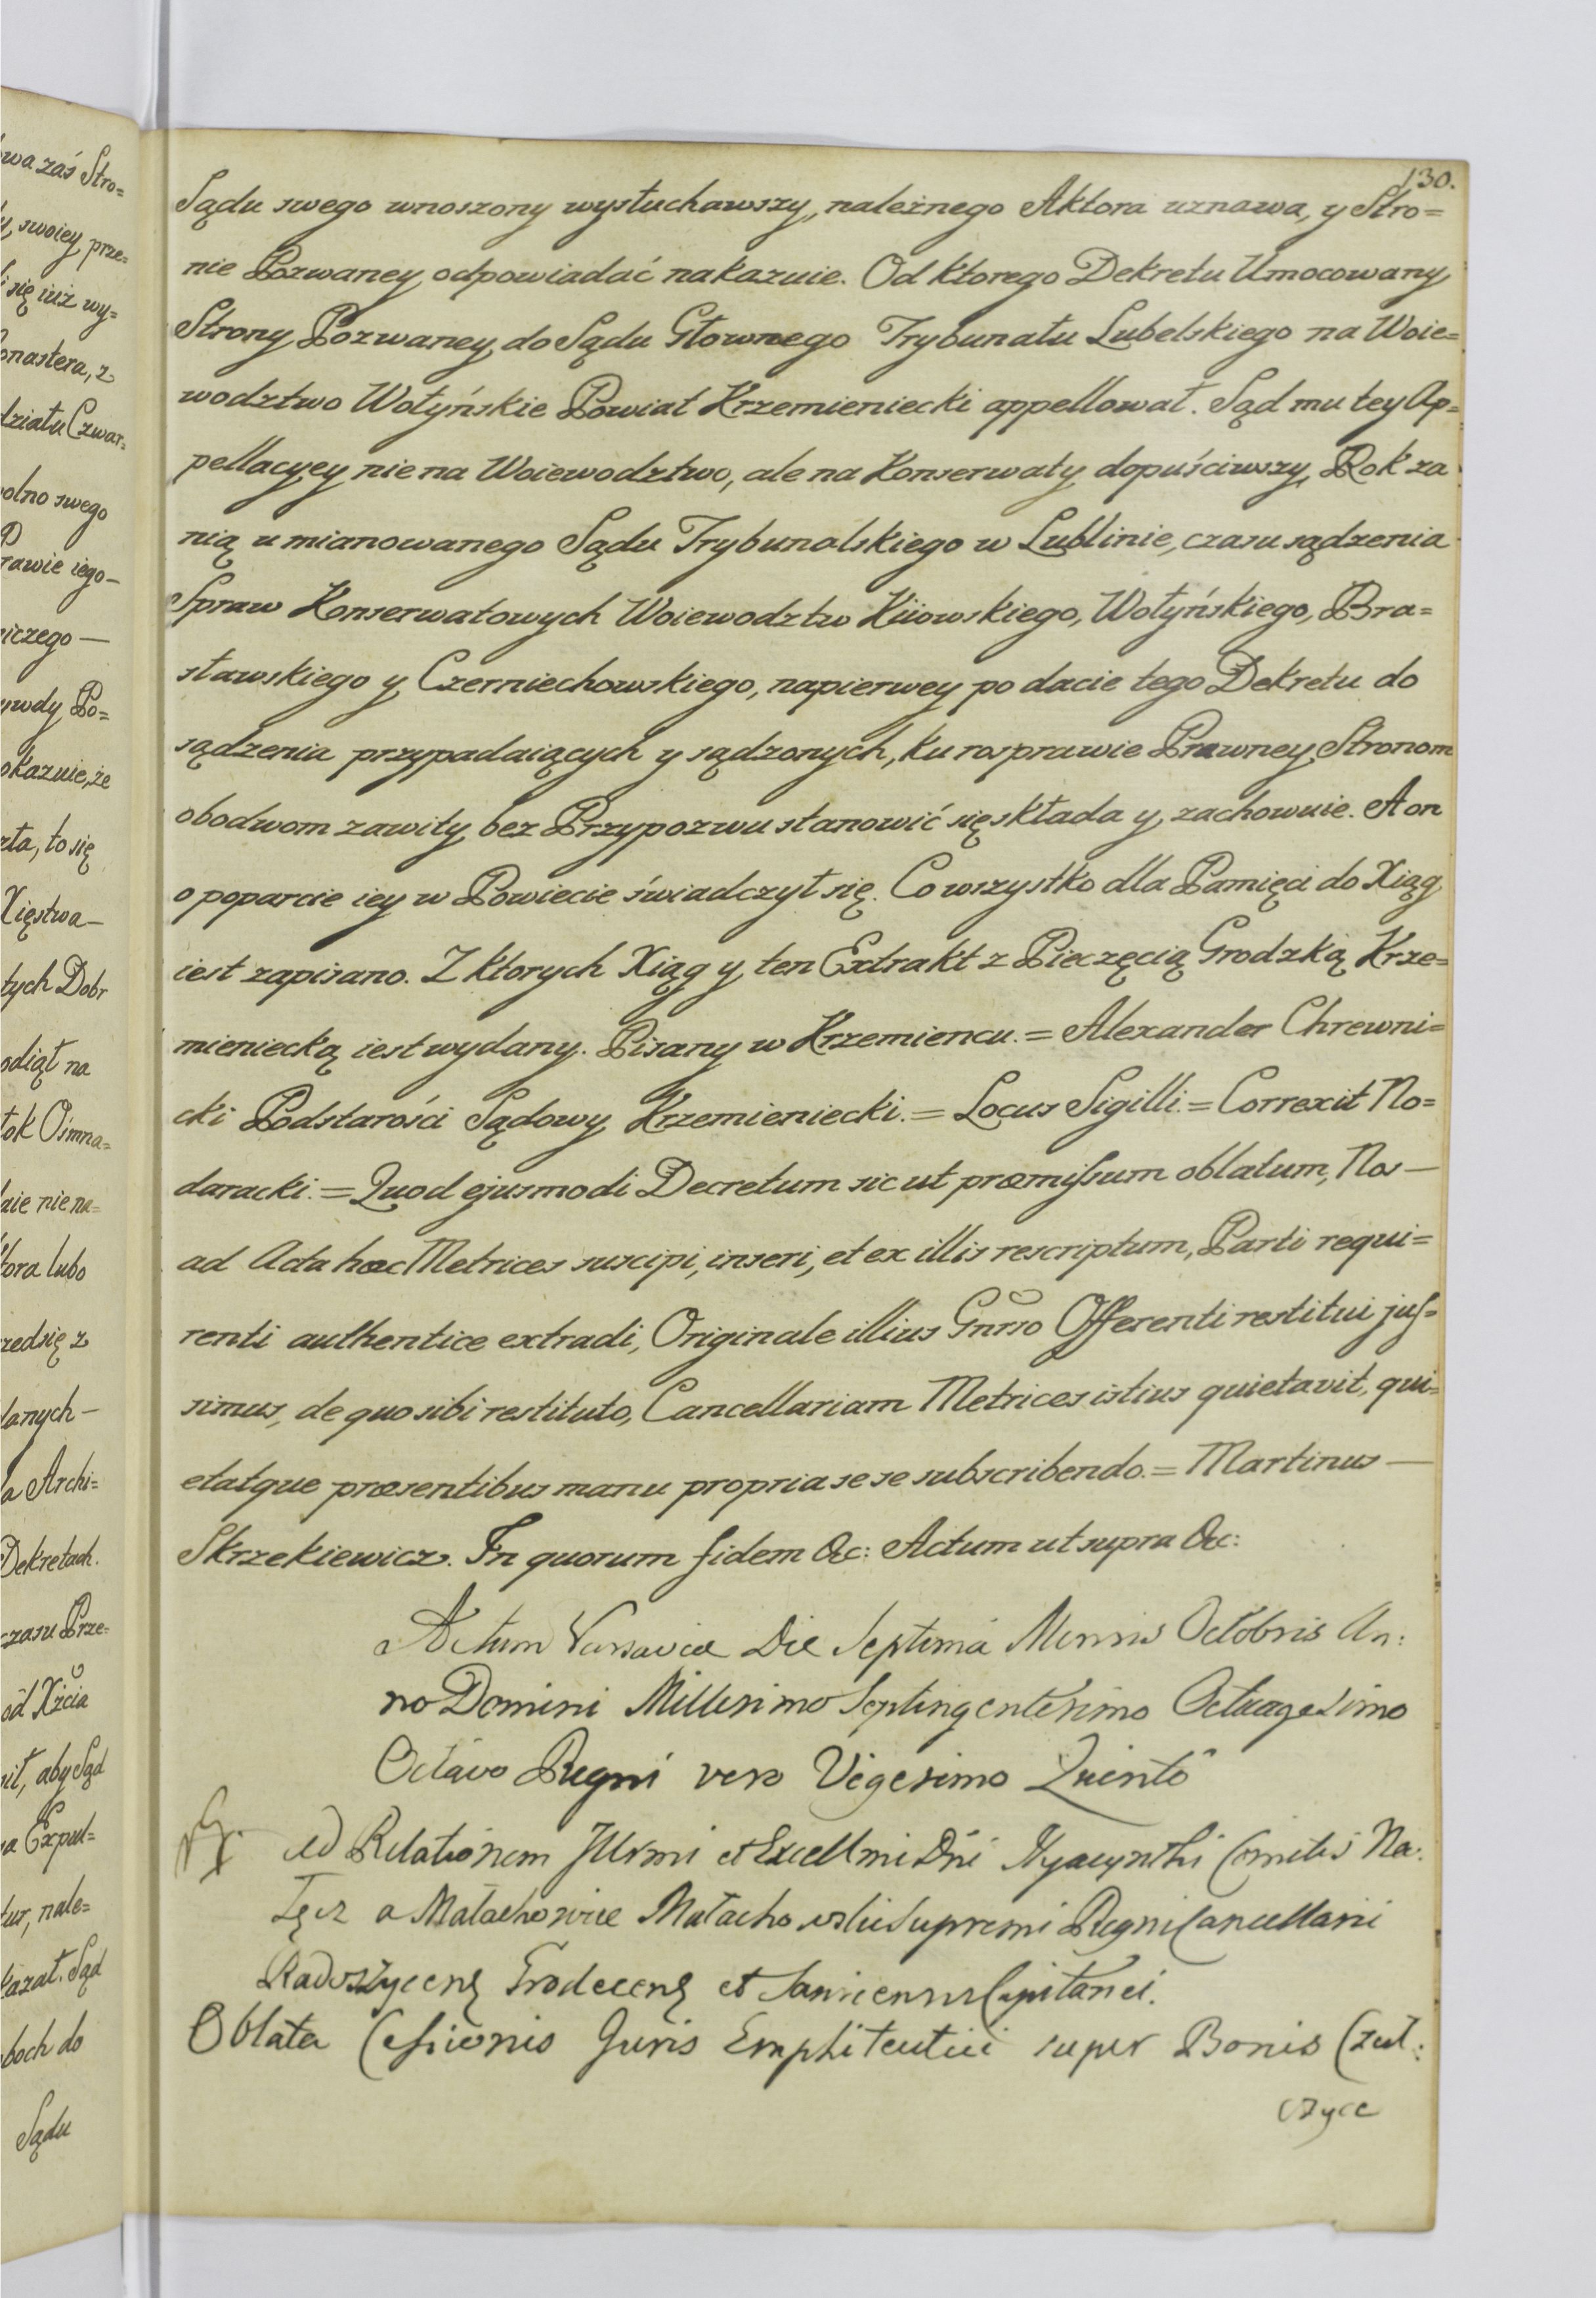 130.
Sądu swego wnoszony wysłuchawszy, należnego Aktora uznawa, y Stro=
nie Pozwaney odpowiadać nakazuie. Od ktorego Dekretu Umocowany
Strony Pozwaney do Sądu Głownego Trybunału Lubelskiego na Woie=
wodztwo Wołyńskie Powiat Krzemieniecki appellował. Sąd mu tey Ap=
pellacyey nie na Woiewodztwo, ale na Konserwaty dopuściwszy, Rok za
nią u mianowanego Sądu Trybunalskiego w Lublinie, czasu sądzenia
Spraw Konserwatowych Woiewodztw Kiiowskiego, Wołyńskiego, Bra=
sławskiego y Czerniechowskiego, napierwey po dacie tego Dekretu do
sądzenia przypadaiących y sądzonych, ku rosprawie Prawney Stronom
obodwom zawity bez Przypozwu stanowić się składa y zachowuie. A on
o poparcie iey w Powiecie świadczył się. Co wszystko dla Pamięci do Xiąg
iest zapisano. Z ktorych Xiąg y ten Extrakt z Pieczęcią Grodzką Krze=
mieniecką iest wydany. Pisany w Krzemiencu. = Alexander Chrewni=
cki Podstarości Sądowy Krzemieniecki. = Locus Sigilli. = Correxit No=
daracki. = Quod ejusmodi Decretum sic ut præmissum oblatum, Nos —
ad Acta hæc Metrices suscipi, inseri, et ex illis rescriptum, Parti requi=
renti authentice extradi, Originale illius Gnrso Offerenti restitui jus=
simus, de quo sibi restituto, Cancellariam Metrices istius quietavit, qui=
etatque præsentibus manu propria se se subscribendo. = Martinus —
Skrzekiewicz. In quorum fidem &c: Actum ut supra &c:
Actum Varsaviæ Die Septima Mensis Octobris An:
no Domini Millesimo Septingentesimo Octuagesimo
Octavo Regni vero Vigesimo Quinto
Ad Relationem Illrmi et Excellmi Dni Hyacynthi Comitis Na:
łęcz a Małachowice Małachowski Supremi Regni Cancellarii
Radoszycens Grodecens et Saniensis Capitanei.
Oblata Cessionis Juris Emphiteutici super Bonis Czuł:
czyce